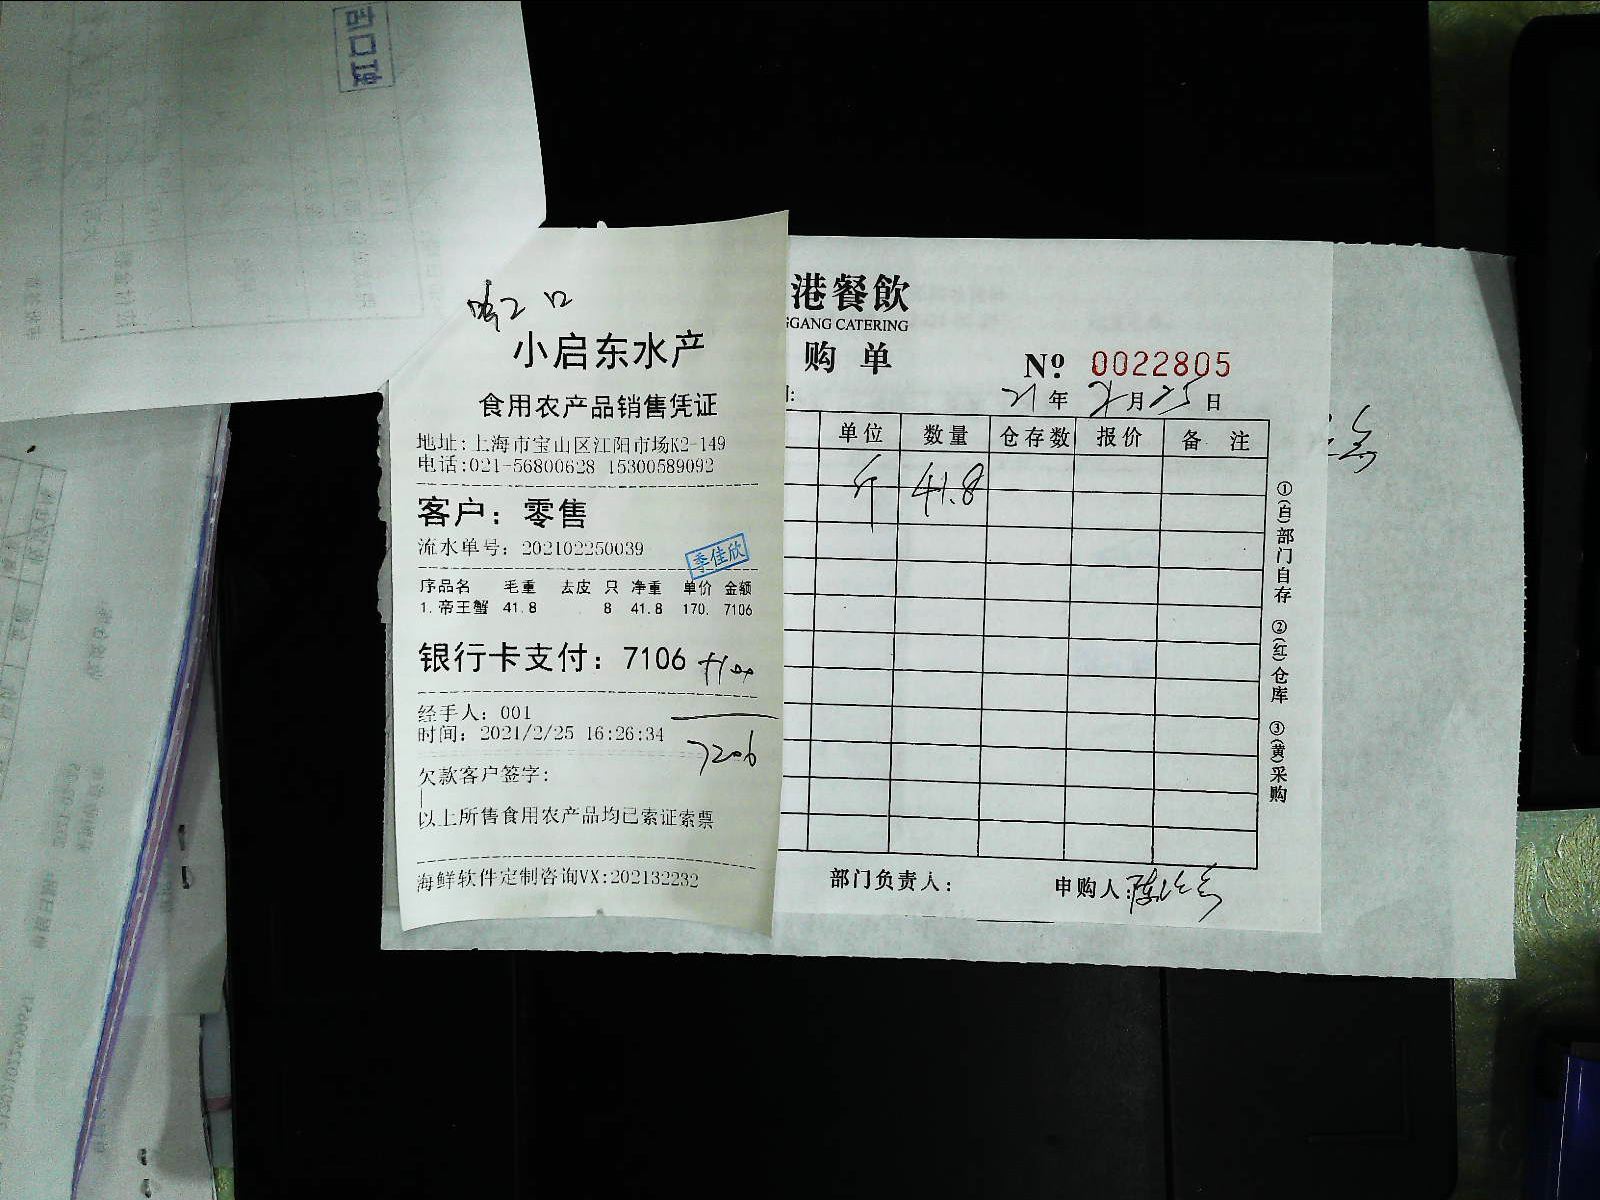 小启东水产
食用农产品销售凭证
地址:上海市宝山区江阳市场K2-149
电话:021-56800628 15300589092
客户：零售
流水单号：202102250039
季佳欣
序品名 毛重 去皮 只 净重 单价 金额
1.帝王蟹 41.8 8 41.8 170. 7106
银行卡支付：7106
+100
经手人：001
时间：2021/2/25 16:26:34
7206
欠款客户签字:
以上所售食用农产品均已索证索票
海鲜软件定制咨询VX:202132232
港餐飲
GGANG CATERING
购单
Nº 0022805
21年2月25日
单位 数量 仓存数 报价 备注
斤 41.8
①(白)部门自存 ②(红)仓库 ③(黄)采购
部门负责人： 申购人: